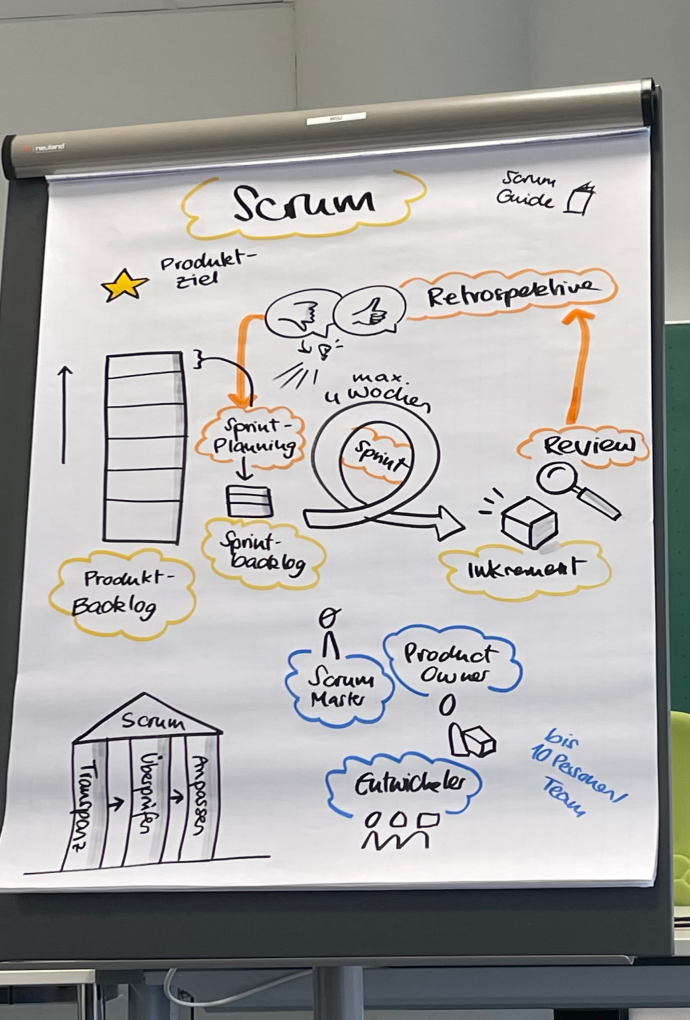 neuland
Scrum
Scrum
Guide
Produkt-
ziel
Retrospektive
max.
4 Wochen
Sprint-
Planning
Sprint
Review
Sprint-
backlog
Inkrement
Produkt-
Backlog
Scrum
Master
Product
Owner
Scrum
Transparenz
Überprüfen
Anpassen
Entwickeler
bis
10 Personen/
Team